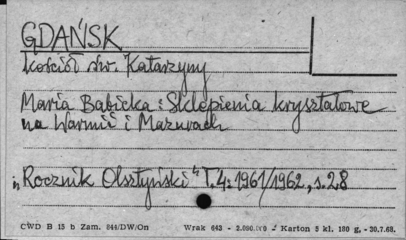 GDAŃSK
Kościół św. Katarzyny
Maria Babicka: Sklepienia kryształowe
na Warmii i Mazurach
"Rocznik Olsztyński" T. 4: 1961/1962, s. 28
CWD B 15 b Zam. 844/DW/On Wrak 643 - 2.000.000 - Karton 8 kl. 180 g, - 30.7.68.